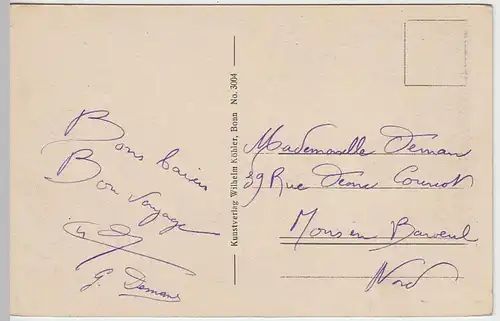 Bons baisers
Bon Voyage
G. Deman
Kunstverlag Wilhelm Köhler, Bonn No. 3004
Mademoiselle Deman
89 Rue
Mons en Baroeul
Nord